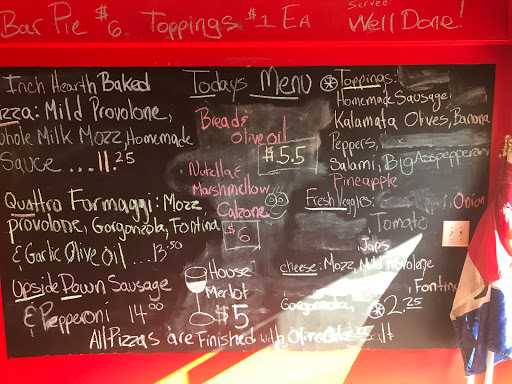 Bar Pie $6. Toppings $1 Ea
Served:
Well Done!
Inch Hearth Baked
izza: Mild Provolone,
whole Milk Mozz, Homemade
Sauce ... 11.25
Quattro Formaggi: Mozz
provolone, Gorgonzola, Fontina
& Garlic Olive oil ... 13.50
Upside Down Sausage
& Pepperoni 14.00
Todays Menu
Bread &
Olive oil
$5.5
Nutella &
Marshmellow
Calzone
$6
House
Merlot
$5
Toppings:
Homemade Sausage
Kalamata Olives, Banana
Peppers,
Salami, Big Ass pepperoni
Pineapple
Fresh Veggies: Onion
Tomato
Japs
cheese: Mozz, Mild Provolone
, Fontina
Gorgonzola,
2.25
All Pizzas are Finished with Olive Oil & Salt